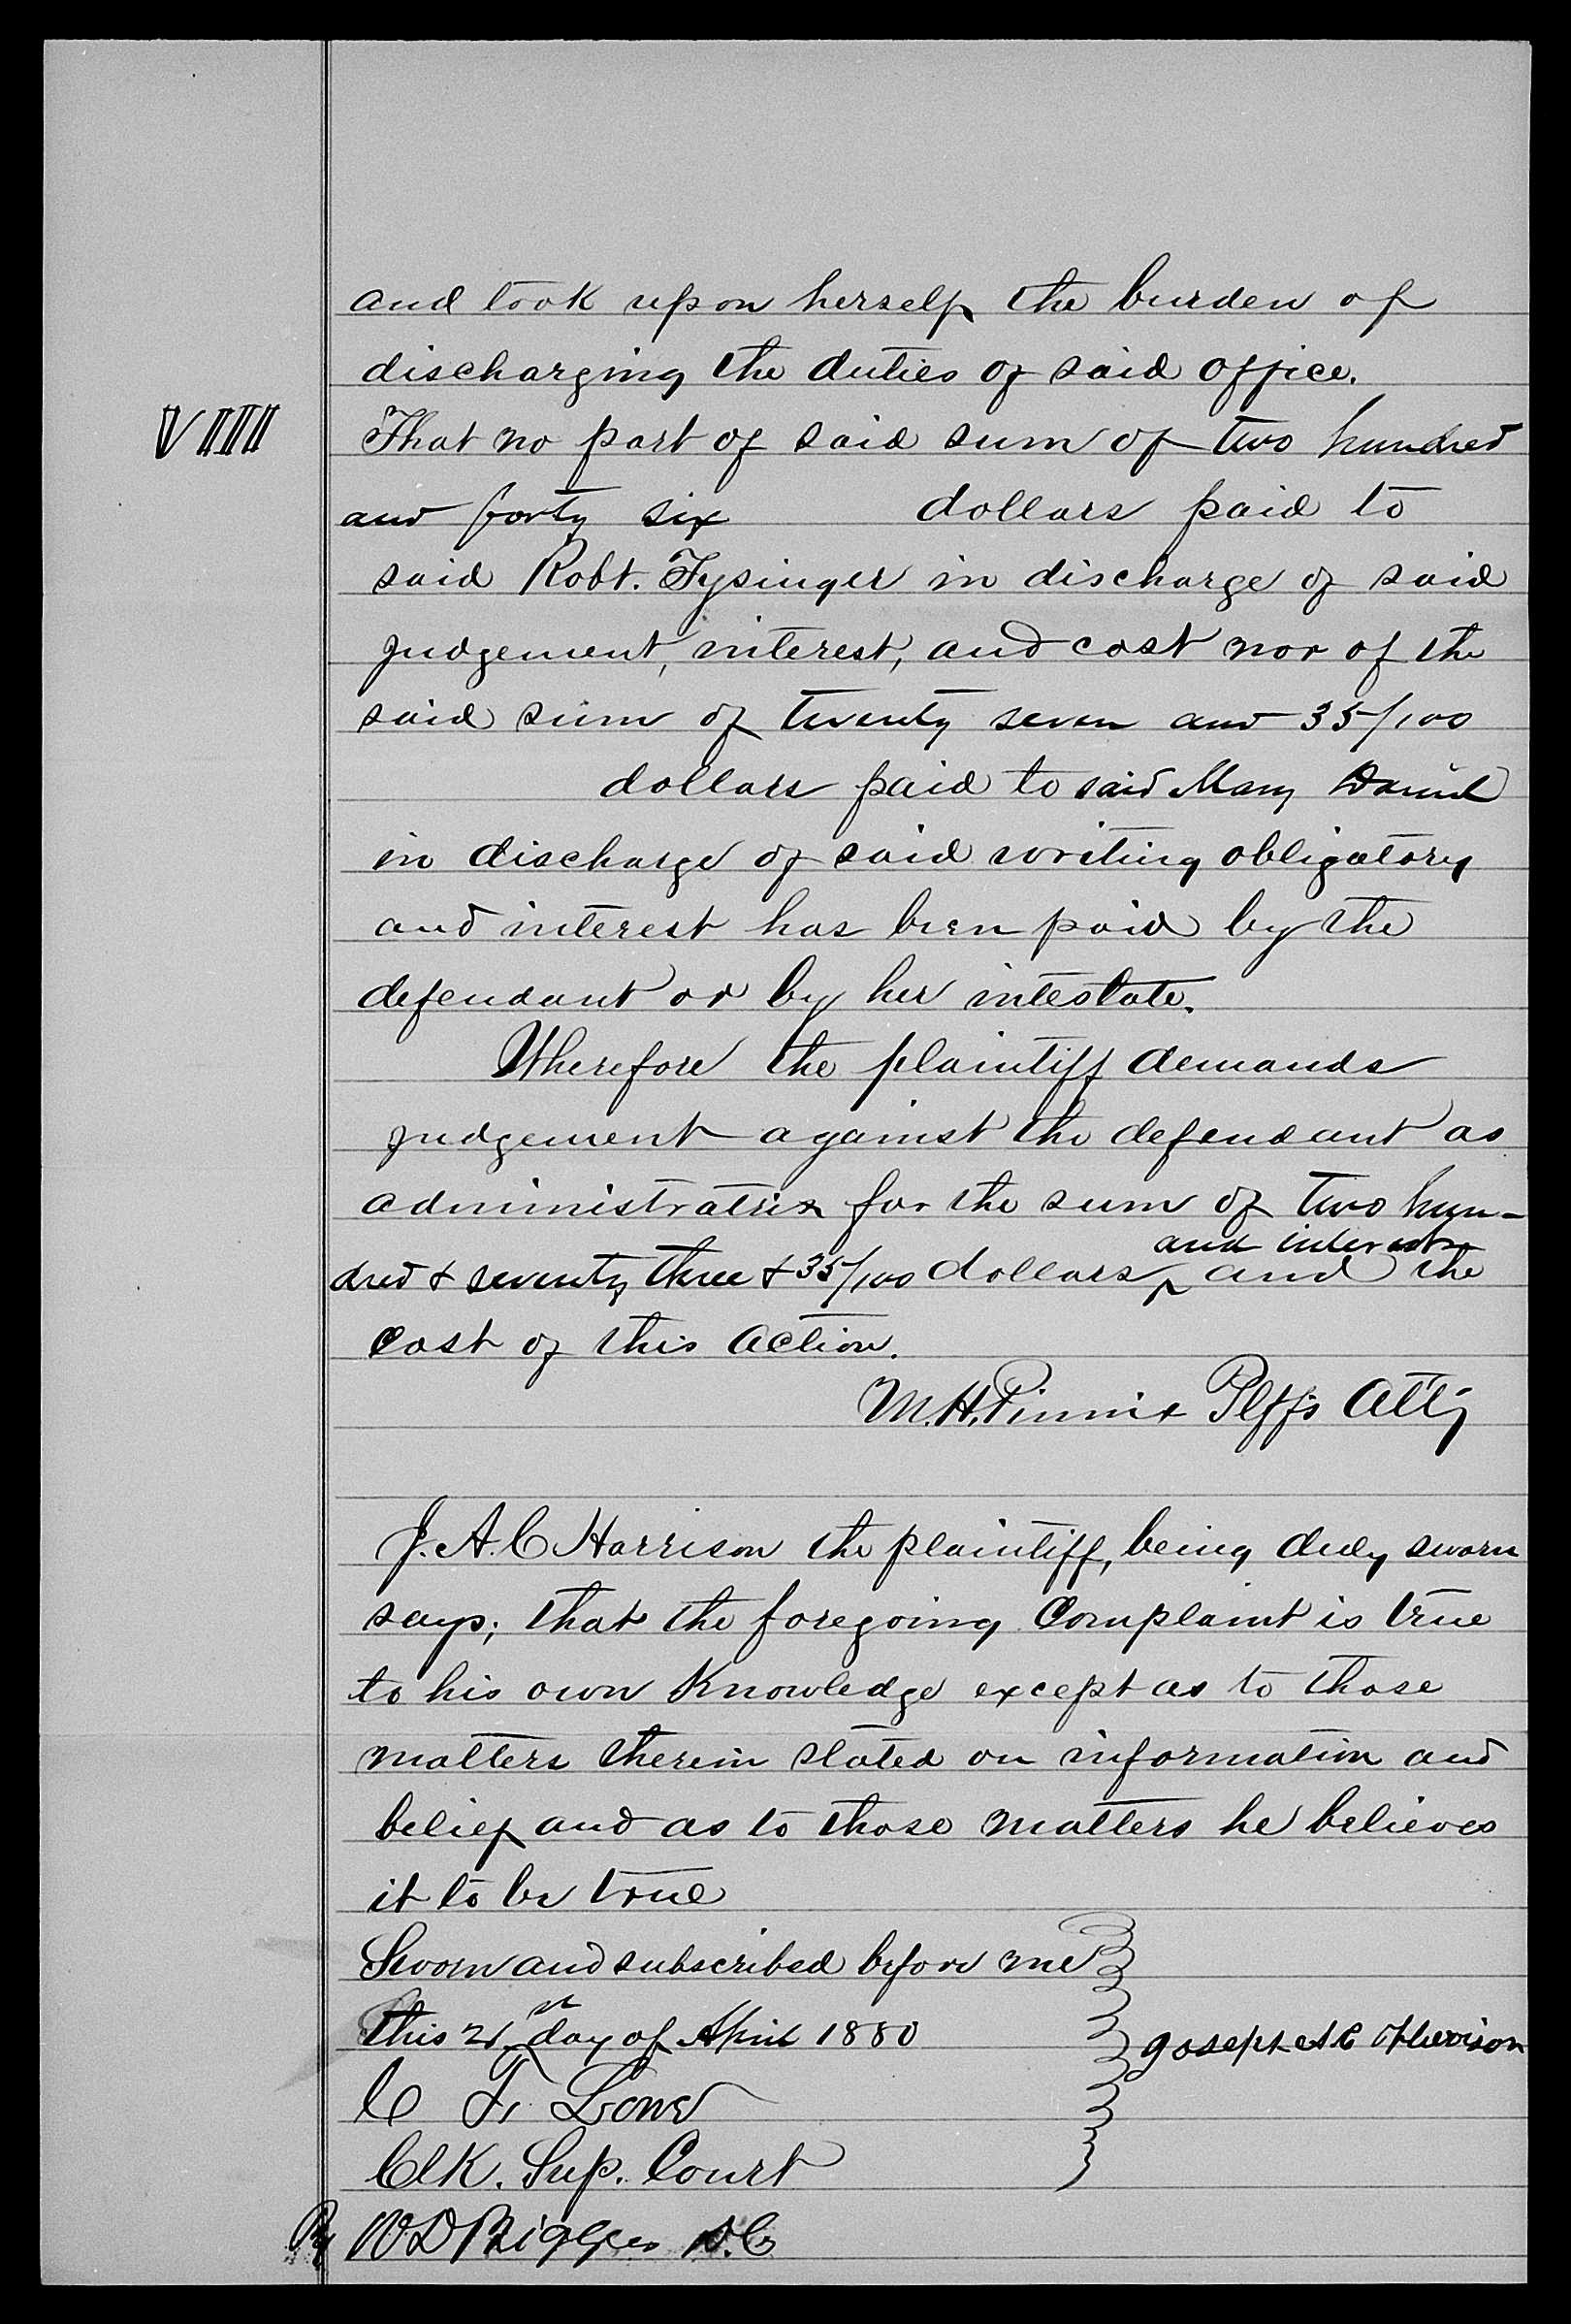 and took upon herself the burden of
discharging the duties of said office.
VIII That no part of said sum of two hundred
and forty six dollars paid to
said Robt. Fysinger in discharge of said
judgement, interest, and cost nor of the
said sum of twenty seven and 35/100
dollars paid to said Mary Daniel
in discharge of said writing obligatory
and interest has been paid by the
defendant or by her intestate.
Wherefore the plaintiff demands
judgement against the defendant as
administratrix for the sum of two hun-
and interest
dred & seventy three & 35/100 dollars ‸ and the
Cost of this action.
M. H. Pinnix Plffs Atty
J. A. C Harrison the plaintiff, being duly sworn
says; that the foregoing Complaint is true
to his own Knowledge except as to those
matters therein stated on information and
belief and as to those matters he believes
it to be true
Sworn and subscribed before me
this 21st day of April 1880 Joseph A C Harrison
C F. Lowe
Clk. Sup. Court
By W D Riggs D.C